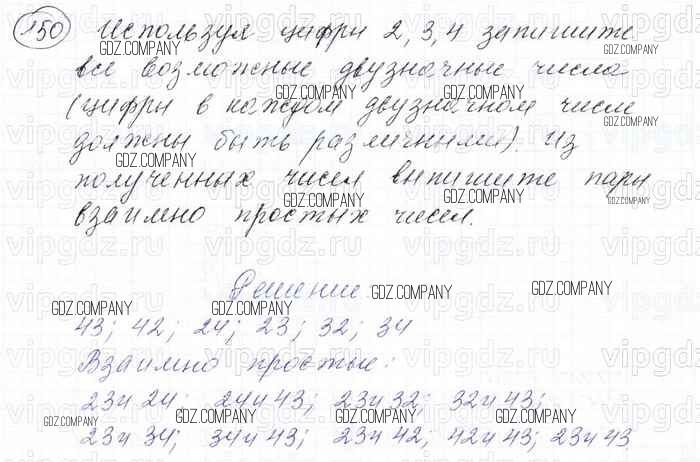 150 Используя цифры 2, 3, 4 запишите
все возможные двузначные числа
(цифры в каждом двузначном числе
должны быть различными). Из
полученных чисел выпишите пары
взаимно простых чисел.
Решение
43; 42; 24; 23; 32; 34
Взаимно простые:
23и 24; 24и 43; 23и 32; 32и 43;
23и 34; 34и 43; 23и 42; 42и 43; 23и 43